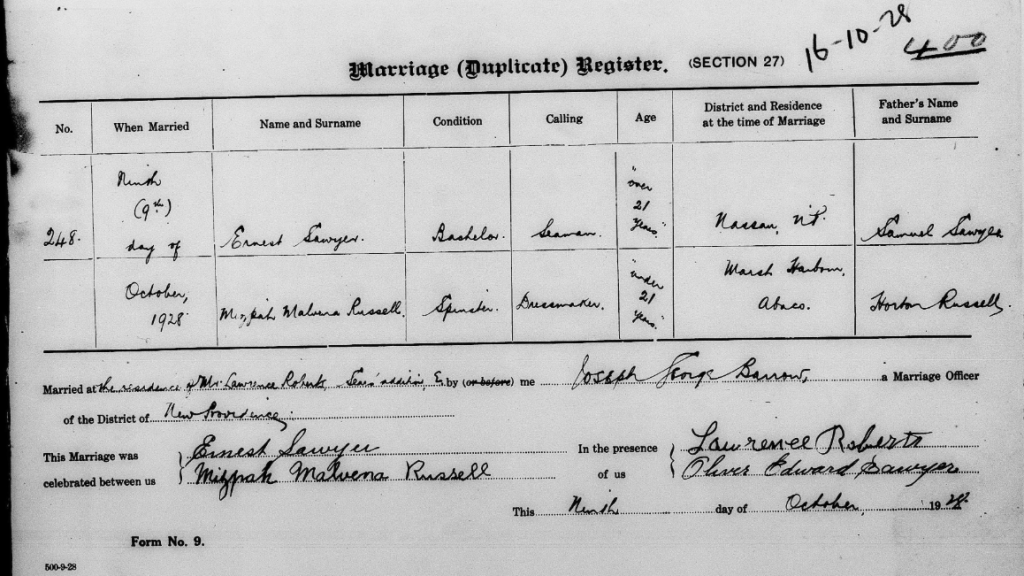 16-10-28
400
Marriage (Duplicate) Register. (SECTION 27)
No. When Married Name and Surname Condition Calling Age District and Residence at the time of Marriage Father's Name and Surname
248. Ninth (9th) day of Ernest Sawyer. Bachelor. Seaman. "over 21 years" Nassau, N.P. Samuel Sawyer
October, 1928 Mizpah Malvena Russell. Spinster. Dressmaker. "under 21 years" Marsh Harbour, Abaco. Horton Russell.
Married at the residence of Mr Lawrence Roberts Sears' addition, E. by (or before) me Joseph George Barrow, a Marriage Officer
of the District of New Providence.
This Marriage was celebrated between us { Ernest Sawyer In the presence of us } Lawrence Roberts
Mizpah Malvena Russell Oliver Edward Sawyer
This Ninth day of October, 1928.
Form No. 9.
500-9-28